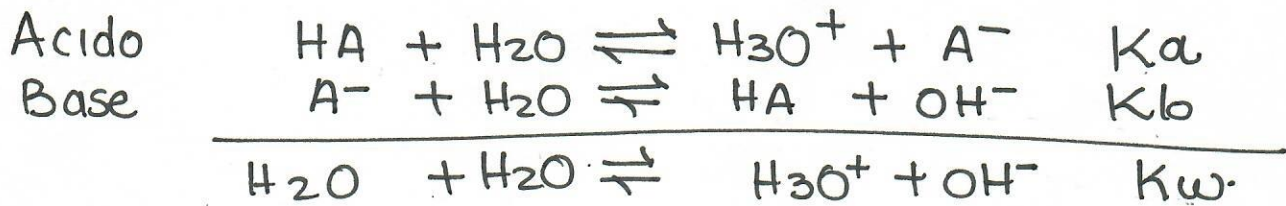 Acido HA + H2O ⇌ H3O+ + A- Ka
Base A- + H2O ⇌ HA + OH- Kb
H2O + H2O ⇌ H3O+ + OH- Kw.